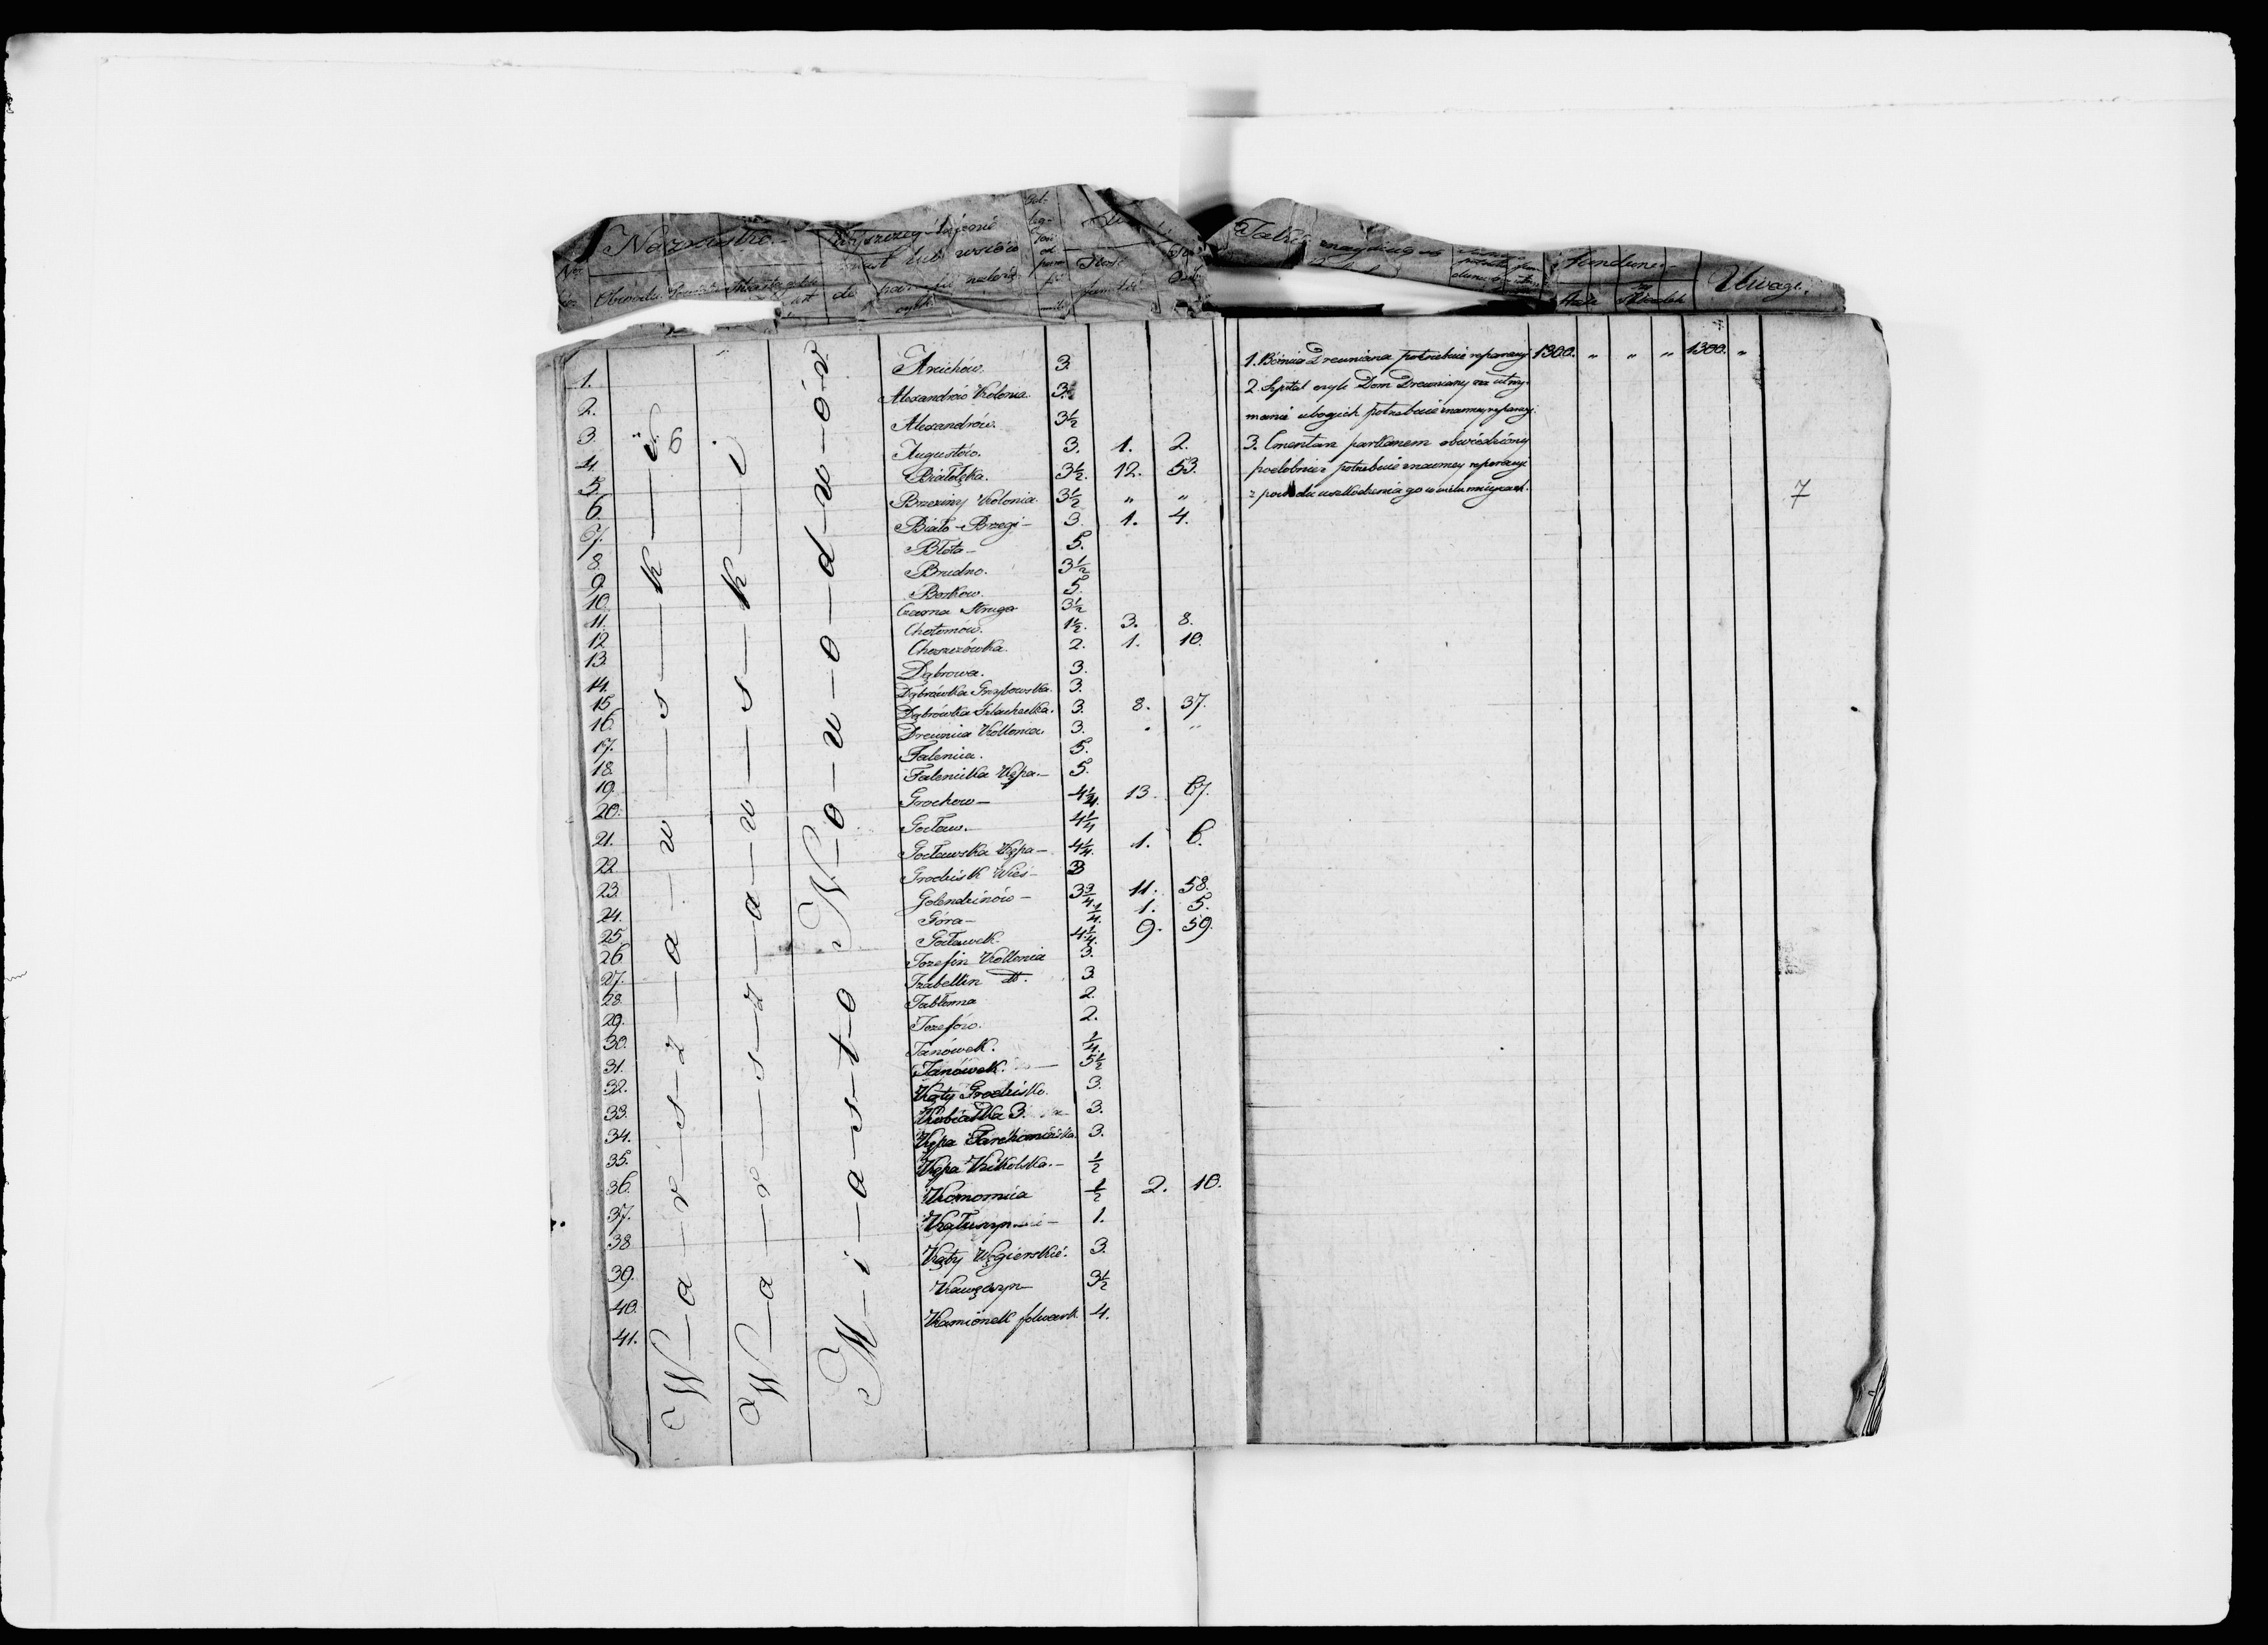 Nazwisko
Wyszczególnienie
miast lub wsiów
do parafii należą-
cych
Odle-
głość
od
para-
fii
Obwodu Powiatu Miasta
Ilość
familii
Fundusz
Uwagi.
W-a-r-s-z-a-w-s-k-i
W-a-r-s-z-a-w-s-k-i
M-i-a-s-t-o N-o-w-o-d-w-o-r
6
1. 3.
2. Alexandrów Kolonia. 3.
3. Alexandrów. 3½
4. Augustów. 3. 1. 2.
5. Białołęka. 3½. 12. 53.
6. Brzeziny Kolonia. 3½ " "
7. Biało-Brzegi- 3. 1. 4.
8. Błota- 5.
9. Brudno. 3½
10. Borków. 5.
11. Czarna Struga 3½
12. Chotomów. 1½. 3. 8.
13. Choszczówka. 2. 1. 10.
14. Dąbrowa. 3.
15. Dąbrówka Grzybowska. 3.
16. Dąbrówka Szlachecka. 3. 8. 37.
17. Drewnica Kollonia. 3. " "
18. Falenica. 5.
19. Falenicka Kępa.- 5.
20. Grochow- 13. 67.
21. Gocław.- 4¼
22. Gocławska Kępa- 4¼. 1. 6.
23. Grodzisk Wieś- 3
24. Golendzinów- 3¾ 11. 58.
25. Góra- ¼. 1. 5.
26. Gocławek. 4¼. 9. 59.
27. Jozefin Kollonia 3.
28. Izabellin dt. 3.
29. Jabłonna 2.
30. Jozefów. 2.
31. Janówek. ¼.
32. Janówek. 5½
33. Kąty Grodzisko. 3.
34. Kobiałka 3. 3.
35. Kępa Tarchomińska. 3.
36. Kępa Kikolska.- ½
37. Komornica ½ 2. 10.
38. Kałuszyn- 1.
39. Kąty Węgierskié. 3.
40. Kawęczyn- 3½
41. Kamionek folwark. 4.
1. Bóźnica Drewniana potrzebuie reparacyi 1300. " " " 1300. "
2. Szpital czyli Dom Drewniany na utrzy-
manie ubogich potrzebuie znaczney reparacyi.
3. Cmentarz parkanem obwiedziony
podobnież potrzebuie znaczney reparacyi
z powodu uszkodzenia go w wielu mieyscach.
7